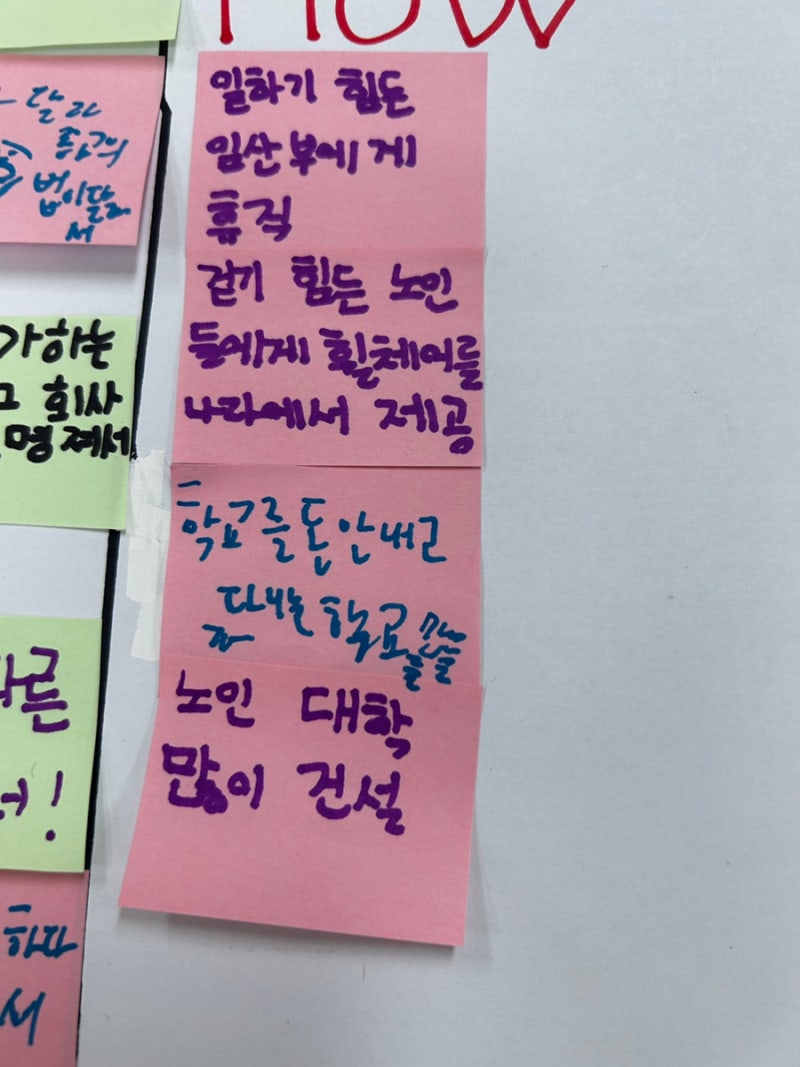 HOW
일하기 힘든
임산부에게
휴직
걷기 힘든 노인
들에게 휠체어를
나라에서 제공
학교를 돈 안내고
다니는 학교를
노인 대학
많이 건설
달라
종교의
법이달라
서
가하는
그 회사
명 져서
다른
서!
하다
서